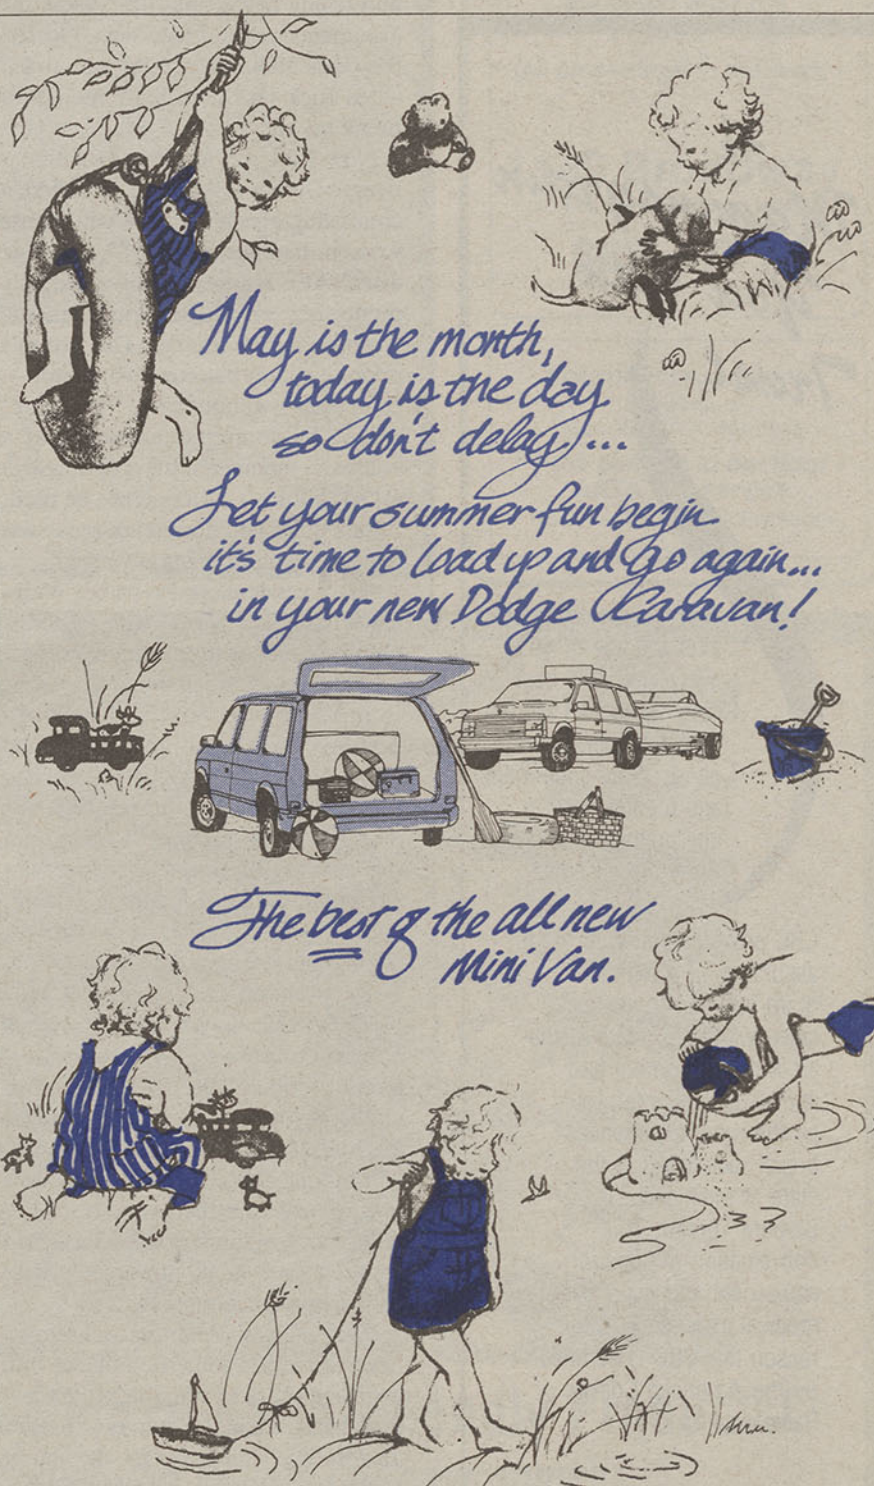 May is the month,
today is the day
so don't delay...
Let your summer fun begin
it's time to load up and go again...
in your new Dodge Caravan!
The best of the all new
Mini Van.